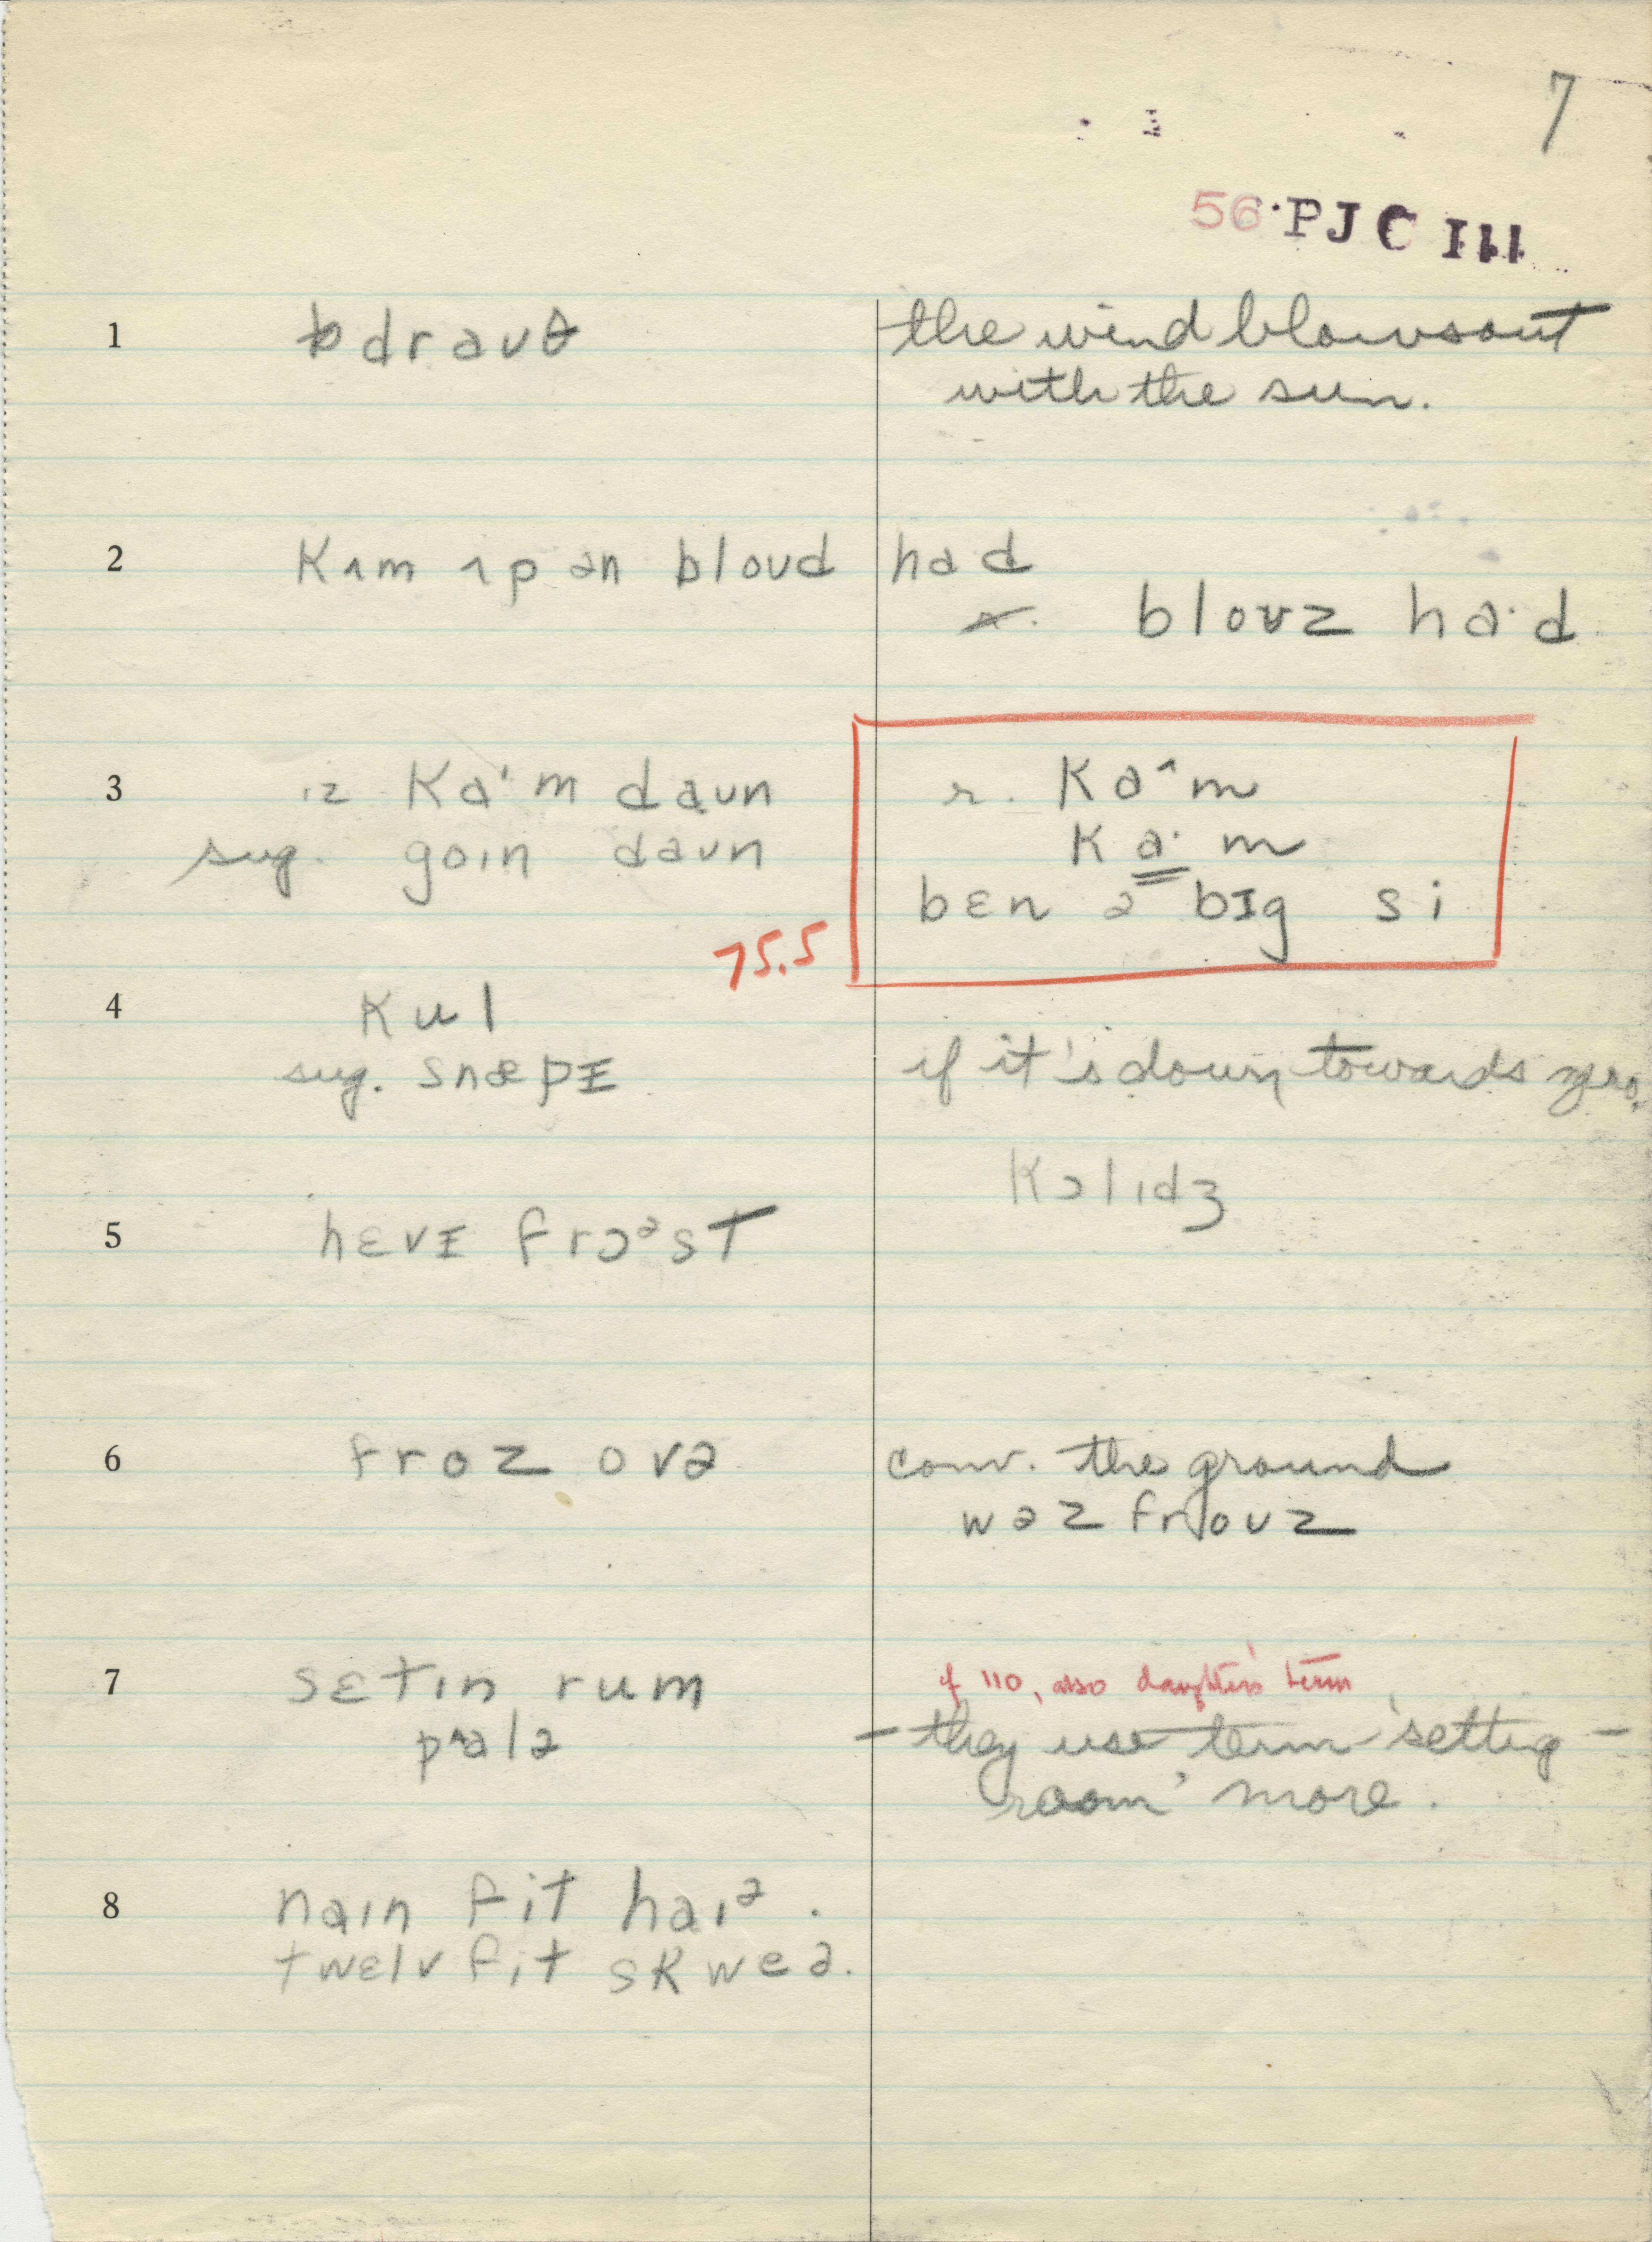 7
56 PJC III
1 drauθ the wind blows out
with the sun.
2 kʌm ʌp ən bloud had
blouz ha·d
3 ɪz ka'm daun r. kaˆm
sug. goɪn daun ka·m
bɛn ə bɪg si
75.5
4 kul
sug. snæpɪ if it's down towards zero.
kɔlɪdʒ
5 hɛvɪ frɔᵊst
6 froz ovə conv. the ground
wəz frouz
7 sɛtɪn rum if 110, also daughter's term
pʌlə – they use term 'setting –
room' more.
8 naɪn fit haɪᵊ.
twɛlv fit skweə.